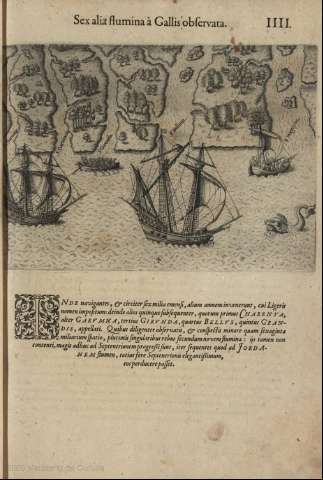 Sex alia flumina à Gallis observata.
IIII.
INDE navigantes, & circiter sex millia emensi, alium amnem invenerunt, cui Ligeris
nomen impositum: deinde alios quinque subsequenter, quorum primus CHARENTA,
alter GARUMNA, tertius GIRUNDA, quartus BELLUS, quintus GRAN-
DIS, appellati. Quibus diligenter observatis, & conspectis minore quam sexaginta
miliarium spatio, plurimis singularibus rebus secundum novem flumina: ijs tamen non
contenti, magis adhuc ad Septentrionem progressi sunt, iter sequentes quod ad JORDA-
NEM flumen, totius fere Septentrionis elegantissimum,
eos perducere posset.